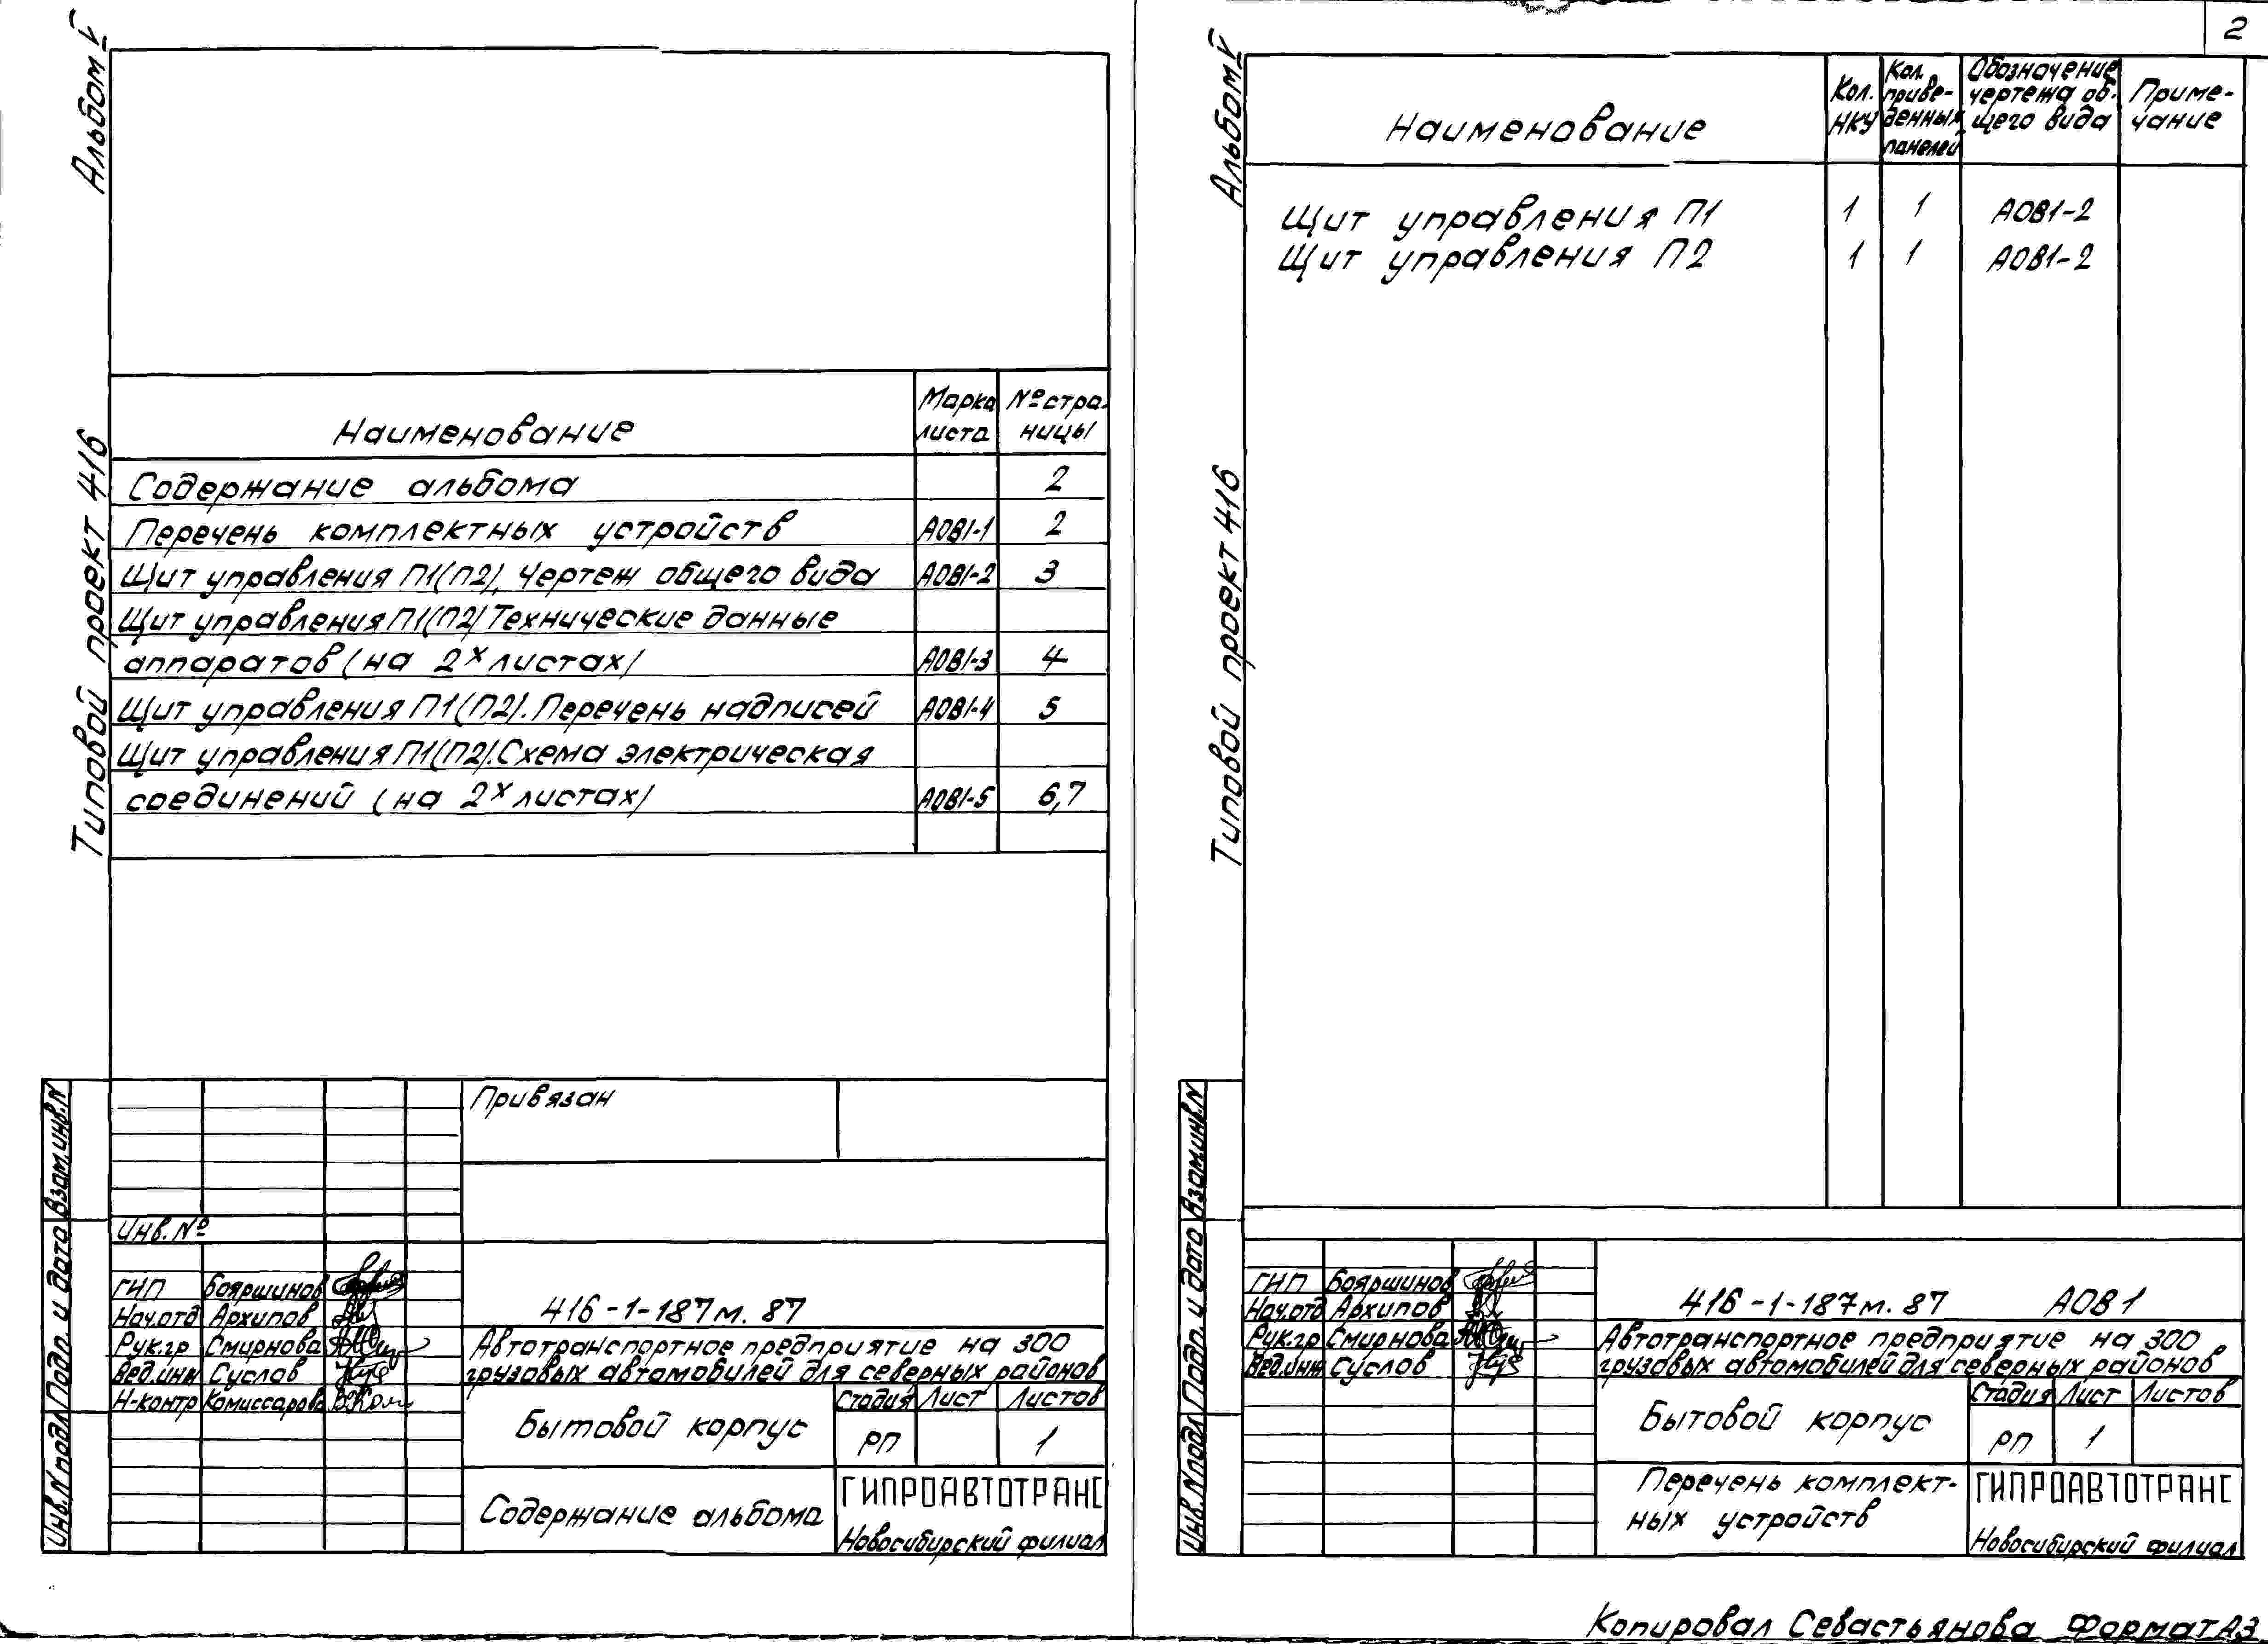 Альбом V
Типовой проект 416
Наименование
Марка листа
№ страницы
Содержание альбома 2
Перечень комплектных устройств АОВ1-1 2
Щит управления П1(П2), Чертеж общего вида АОВ1-2 3
Щит управления П1(П2) Технические данные
аппаратов (на 2х листах) АОВ1-3 4
Щит управления П1(П2). Перечень надписей АОВ1-4 5
Щит управления П1(П2). Схема электрическая
соединений (на 2х листах) АОВ1-5 6,7
Привязан
Инв. №
ГИП Бояршинов
Нач.отд Архипов
Рук.гр Смирнова
Вед.инж Суслов
Н-контр Комиссарова
416-1-187м. 87
Автотранспортное предприятие на 300
грузовых автомобилей для северных районов
Бытовой корпус
Стадия Лист Листов
РП 1
Содержание альбома
ГИПРОАВТОТРАНС
Новосибирский филиал
Взам.инв.N
Подп. и дата
Инв.N подл
2
Альбом V
Типовой проект 416
Наименование
Кол.
НКУ
Кол.
приве-
денных
панелей
Обозначение
чертежа об-
щего вида
Приме-
чание
Щит управления П1 1 1 АОВ1-2
Щит управления П2 1 1 АОВ1-2
ГИП Бояршинов
Нач.отд Архипов
Рук.гр Смирнова
Вед.инж Суслов
416-1-187м. 87 АОВ1
Автотранспортное предприятие на 300
грузовых автомобилей для северных районов
Бытовой корпус
Стадия Лист Листов
РП 1
Перечень комплект-
ных устройств
ГИПРОАВТОТРАНС
Новосибирский филиал
Взам.инв.N
Подп. и дата
Инв.N подл
Копировал Севастьянова Формат А3